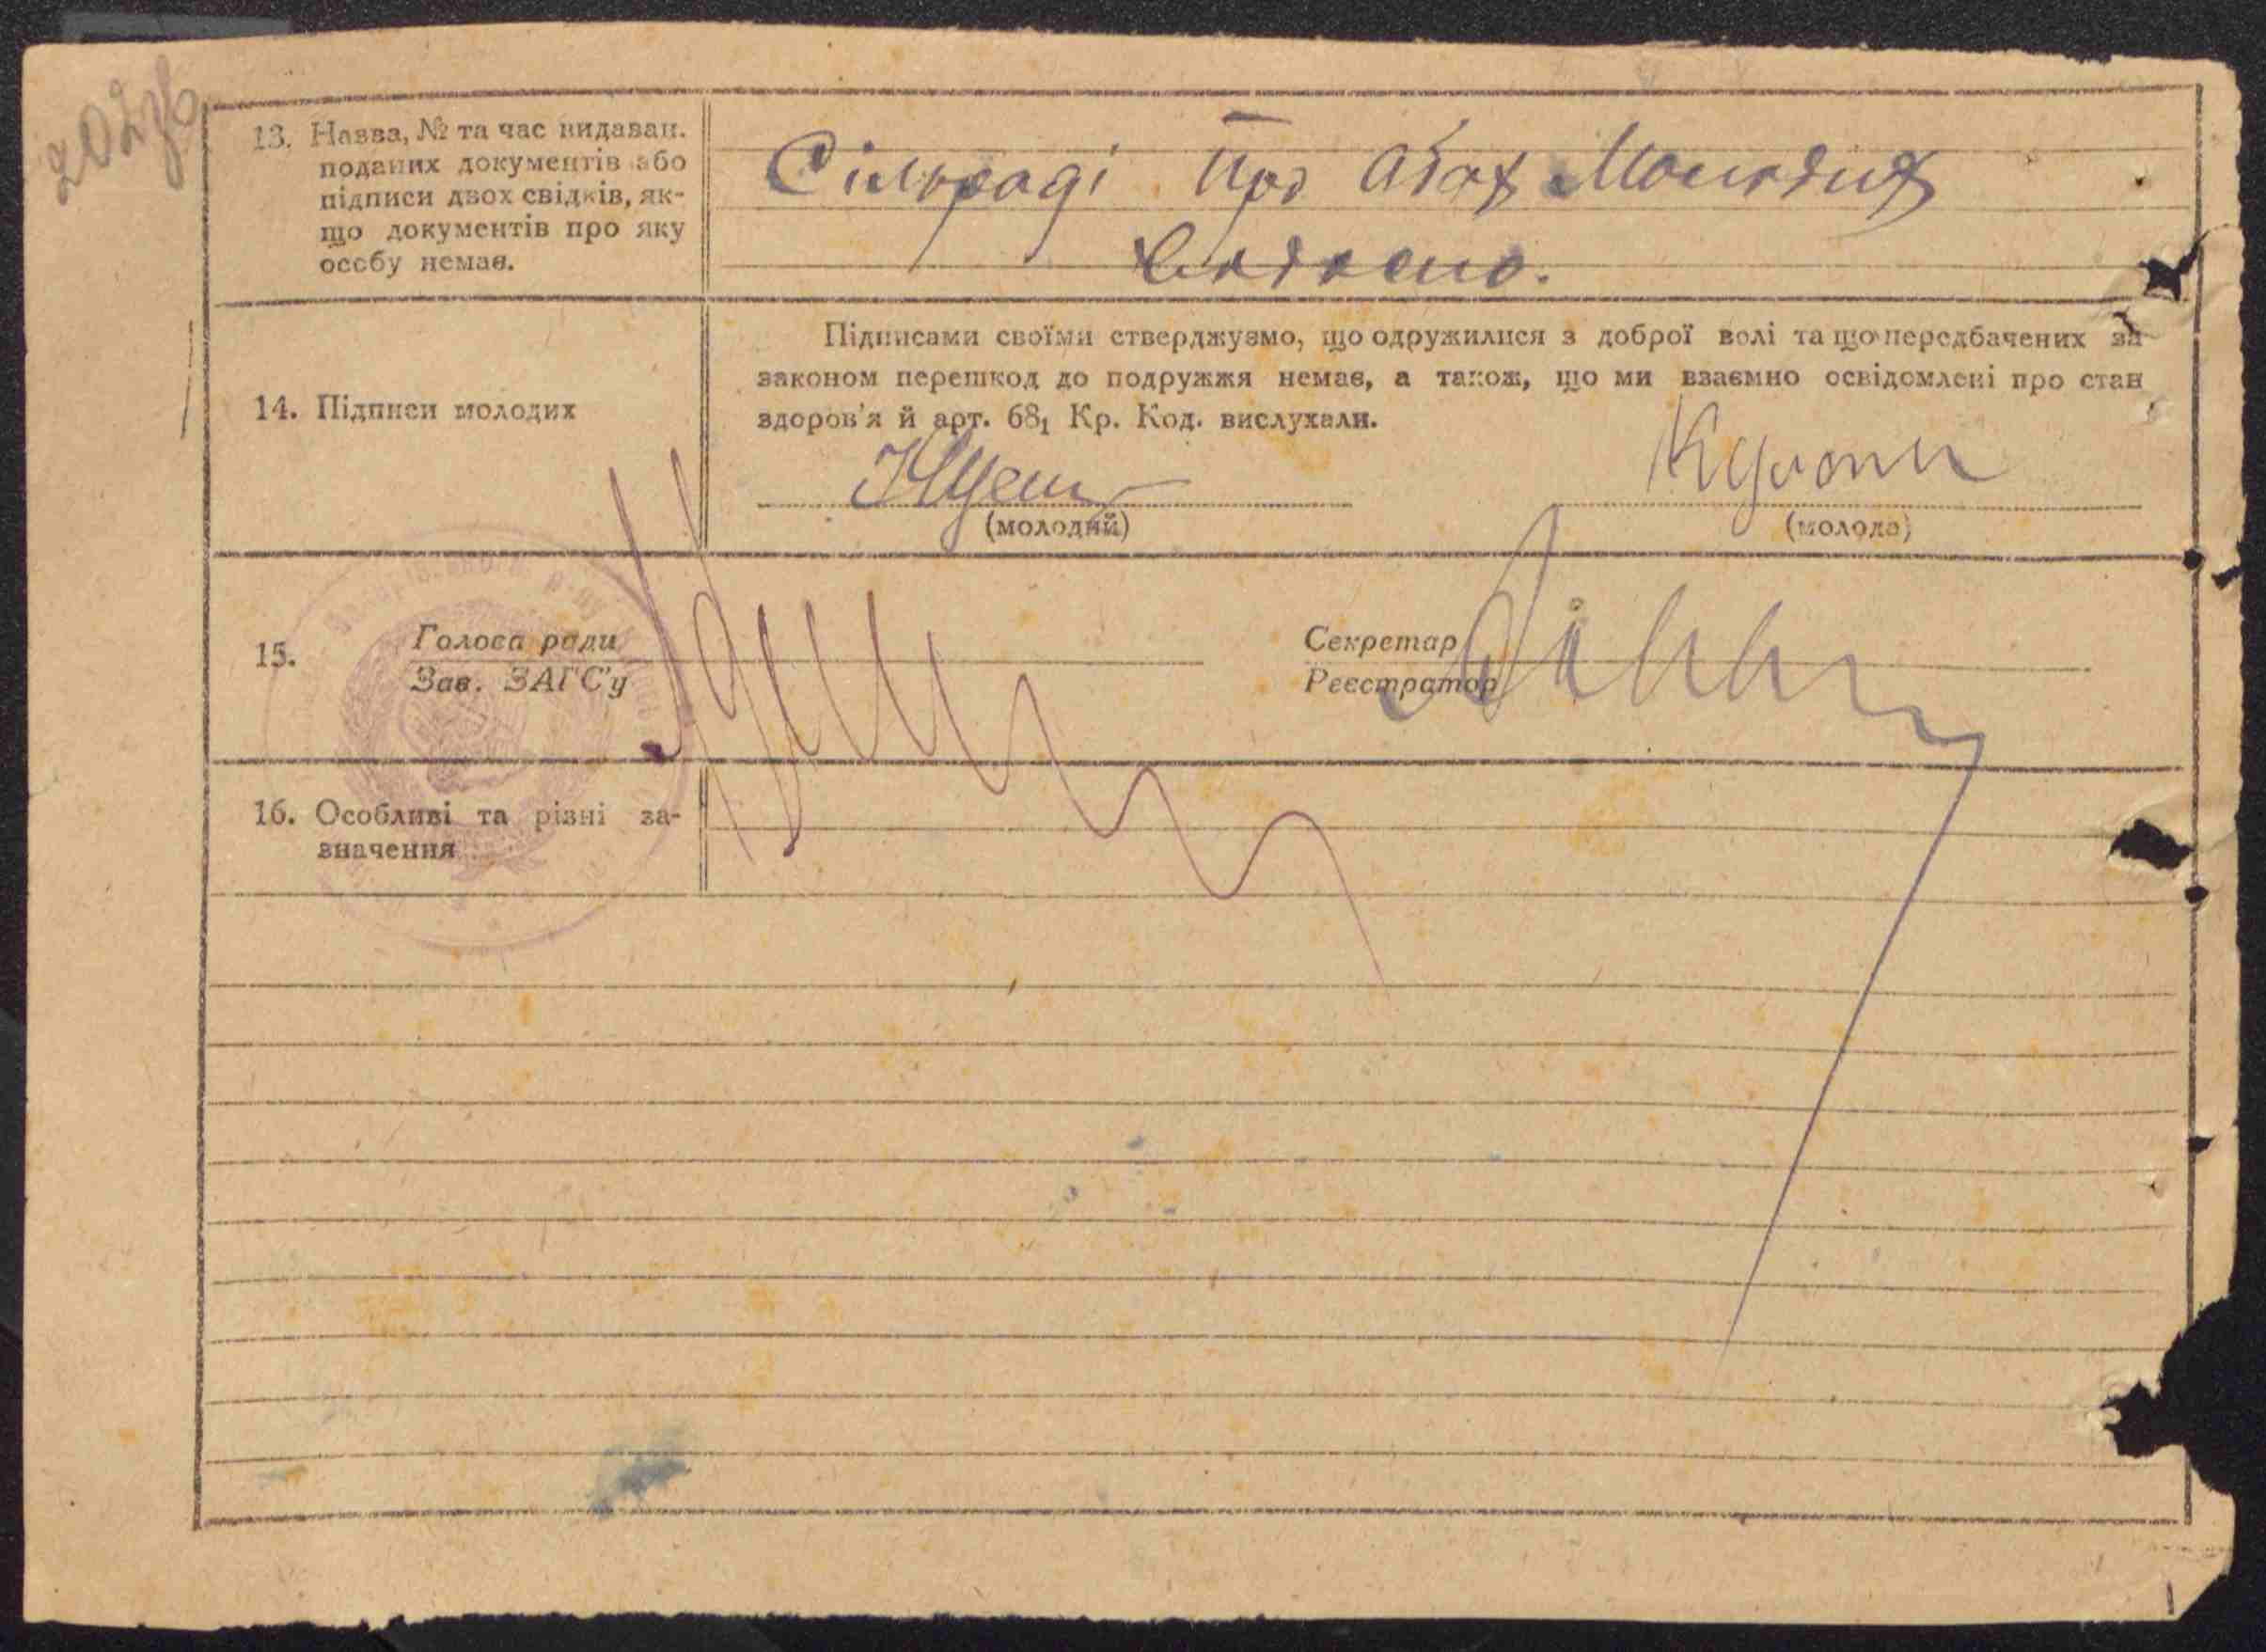 202зв
13. Назва, № та час видаван.
поданих документів або
підписи двох свідків, як-
що документів про яку
особу немає.
Сільраді про обох Молодих
відомо.
14. Підписи молодих
Підписами своїми стверджуємо, що одружилися з доброї волі та що передбачених за
законом перешкод до подружжя немає, а також, що ми взаємно освідомлені про стан
здоров'я й арт. 68₁ Кр. Код. вислухали.
(молодий)
(молода)
15.
Голова ради
Зав. ЗАГС'у
Секретар
Реєстратор
16. Особливі та різні за-
значення